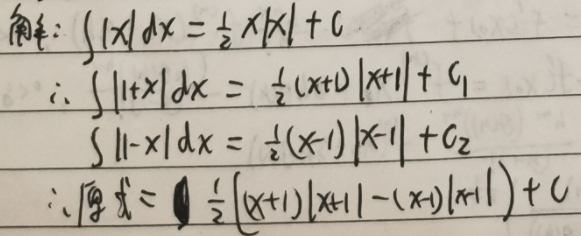 解: ∫|x|dx = 1/2 x|x| + C
∴ ∫|1+x|dx = 1/2(x+1)|x+1| + C₁
∫|1-x|dx = 1/2(x-1)|x-1| + C₂
∴ 原式 = 1/2[(x+1)|x+1| - (x-1)|x-1|) + C